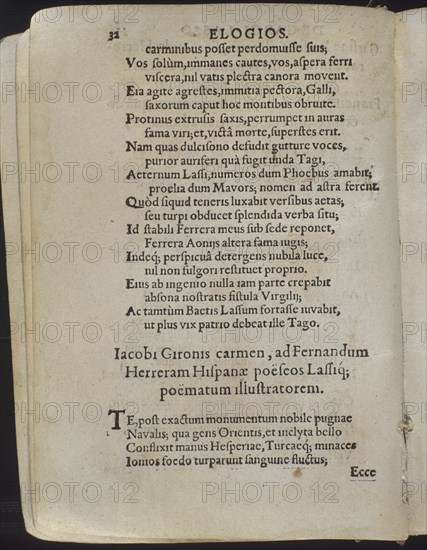 32 ELOGIOS.
carminibus posset perdomuisse suis;
Vos solùm, immanes cautes, vos, aspera ferri
viscera, nil vatis plectra canora movent.
Eia agite agrestes, immitia pectora, Galli,
saxorum caput hoc montibus obruite.
Protinus extrusis saxis, perrumpet in auras
fama viri; et, victâ morte, superstes erit.
Nam quas dulcisono defudit gutture voces,
purior auriferi quà fugit unda Tagi,
Aeternum Lassi, numeros dum Phoebus amabit;
proelia dum Mavors; nomen ad astra ferent.
Quòd siquid teneris luxabit versibus aetas;
seu turpi obducet splendida verba situ;
Id stabili Ferrera meus sub sede reponet,
Ferrera Aonijs altera fama iugis;
Indeq; perspicuâ detergens nubila luce,
nil non fulgori restituet proprio.
Eius ab ingenio nulla iam parte crepabit
absona nostratis fistula Virgilij;
Ac tamtùm Baetis Lassum fortasse iuvabit,
ut plus vix patrio debeat ille Tago.
Iacobi Gironis carmen, ad Fernandum
Herreram Hispanæ poëseos Lassiq;
poëmatum illustratorem.
TE, post exactum monumentum nobile pugnae
Navalis; qua gens Orientis, et inclyta bello
Conflixit manus Hesperiae, Turcaeq; minaces
Ionios foedo turparunt sanguine fluctus;
Ecce
PHOTO 12